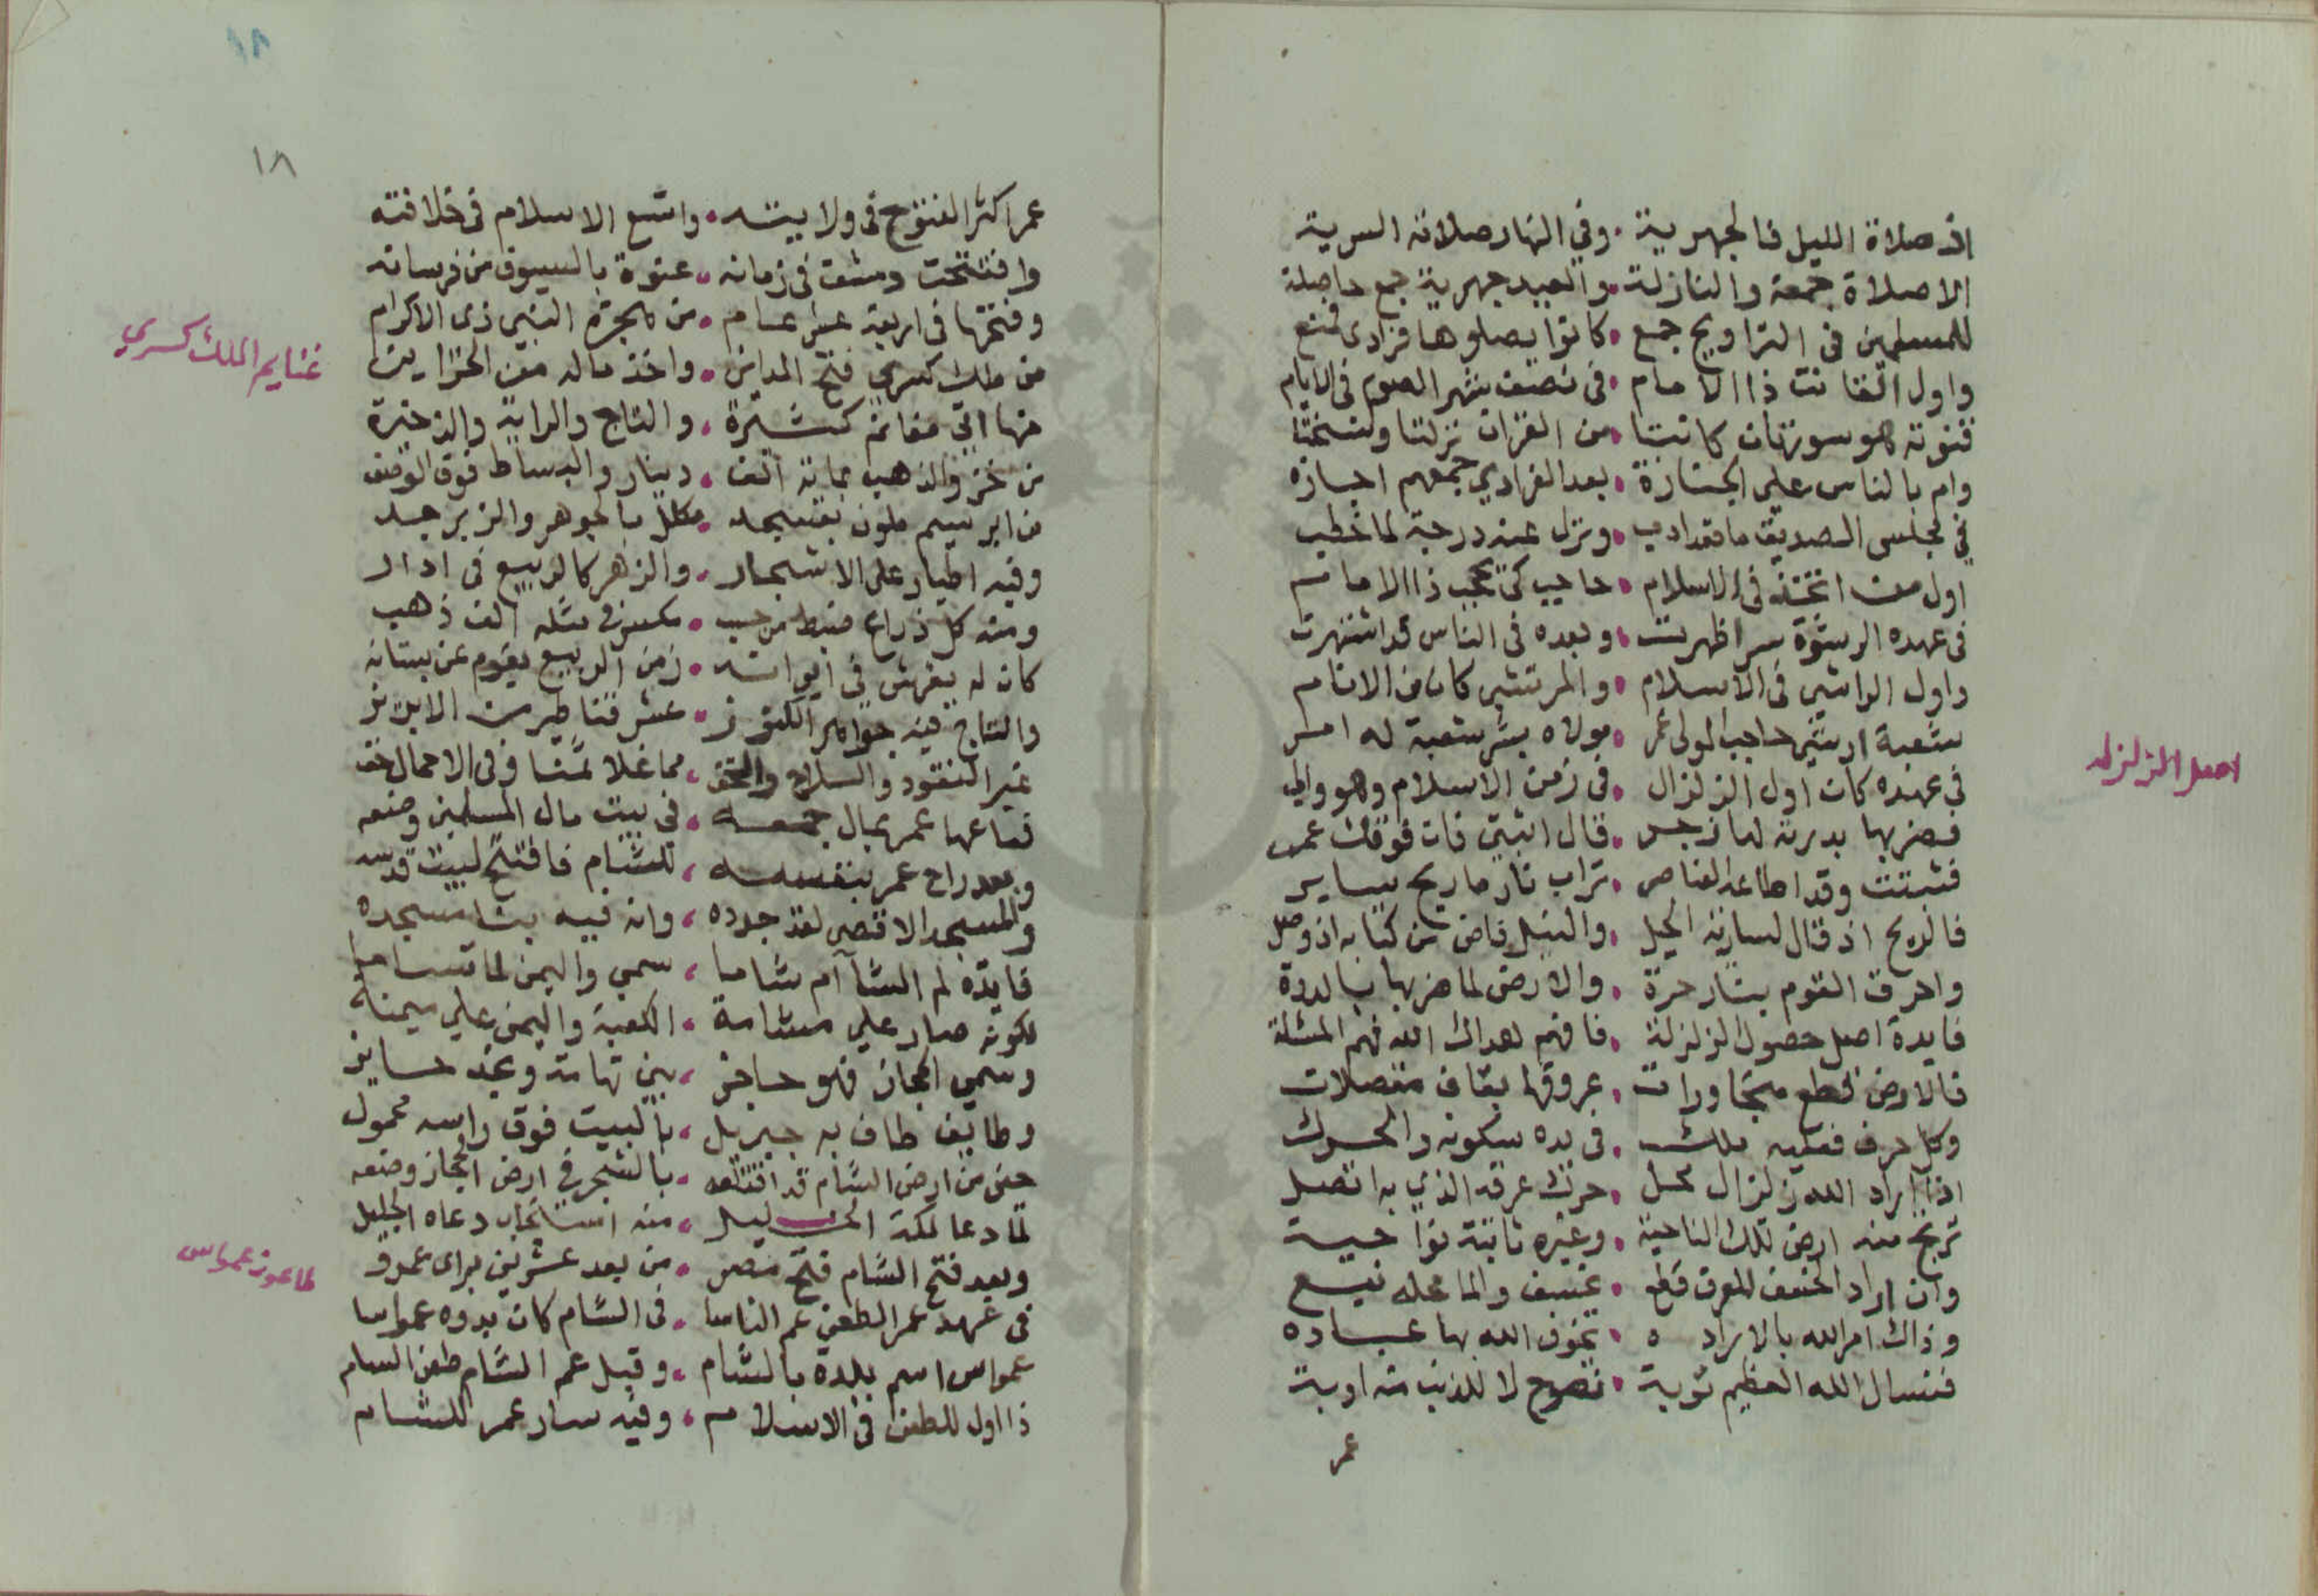 اذ صلاة الليل فالجهرية . وفي النهار صلاته السرية
الا صلاة جمعة والنازلة . والعيد جهرية جمع حاصلة
للمسلمين في التراويح جمع . كانوا يصلوها فرادى فمنع
واول القانت ذا الامام . في نصف شهر الصوم في الايام
قنوته هو سورتان كانتا . من القران نزلتا ونسختا
وام بالناس على الجنازة . بعد الفرادي جمعهم اجازه
في مجلس الصديق ما قعد ادب . ونزل عنه درجة لما خطب
اول من اتخذ في الاسلام . حاجب كي يحجب ذا الامام
في عهده الرشوة سرا ظهرت . وبعده في الناس قد اشتهرت
واول الراشي في الاسلام . والمرتشي كان من الانام
شعبة ارشي حاجب المولى عمر . مولاه بشر شعبة له امر
في عهده كان اول الزلزال . في زمن الاسلام وهو والي
فضربها بدرته لها زجر . قال اثبتي فان فوقك عمر
فثبتت وقد اطاعه العناصر . تراب نار ما ريح يساير
فالريح اذ قال لسارية الجبل . والنيل فاض من كتابه اذ وصل
واحرق القوم بنار حرة . والارض لما ضربها بالدرة
فايدة اصل حصول الزلزلة . فافهم هداك الله فهم المسئلة
فالارض قطع متجاورات . عروقها بقاف متصلات
وكل عرق فعليه ملك . في يده سكونه والحرك
اذا اراد الله زلزال محل . حرك عرقه الذي به اتصل
ترتج منه ارض تلك الناحية . وغيره ثابتة نواحيه
وان اراد الخسف للعرق قطع . تخسف والما محله نبع
وذاك امر الله بالاراده . تخوف الله بها عباده
فنسال الله العظيم توبة . نصوح لا للذنب منه اوبة
عمر
اصل الزلزله
١٨
١٨
عمر اكثر الفتوح في ولايته . واتسع الاسلام في خلافته
وافتتحت دمشق في زمانه . عنوة بالسيوف من فرسانه
وفتحها في اربعة عشر عام . من هجرة النبي ذي الاكرام
من ملك كسري فتح المداين . واخذ ماله من الخزاين
منها اتى مغانم كثيرة . والتاج والراية والذخيرة
من خز والذهب بماية الف . دينار والبساط فوق الوصف
من ابريسم ملون بعسجد . مكلل بالجوهر والزبرجد
وفيه اطيار على الاشجار . والزهر كالربيع في ادار
ومنه كل ذراع ضبط من حسب . مكسر في مثله الف ذهب
كان له يفرش في ايوانه . زمن الربيع يقوم عن بستانه
والتاج فيه جواهر الكنوز . عشر قناطير من الابريز
غير النقود والسلاح والتحف . مما غلا ثمنا وفي الاحمال خف
فباعها عمر بمال جمعه . في بيت مال المسلمين وضعه
وبعد راح عمر بنفسه . للشام فافتتح لبيت قدسه
والمسجد الاقصى لقد جدده . وانه فيه بنا مسجده
فايدة لم الشآم شاما . سمي واليمن لما تساما
لكونه صار على مشامة . الكعبة واليمن على ميمنة
وسمي الحجاز فهو حاجز . بين تهامة ونجد حايز
وطايف طاف به جبريل . بالبيت فوق راسه محمول
حين من ارض الشام قد اقتلعه . بالشجر في ارض الحجاز وضعه
لما دعا لمكة الخليل . منه استجاب دعاه الجليل
وبعد فتح الشام فتح مصر . من بعد عشرين براى عمرو
في عهد عمر الطعن عم الناسا . في الشام كان بدوه عمواسا
عمواس اسم بلدة بالشام . وقيل عم الشام طعن السام
ذا اول للطعن في الاسلام . وفيه سار عمر للشام
غنايم الملك كسري
طاعون عمواس